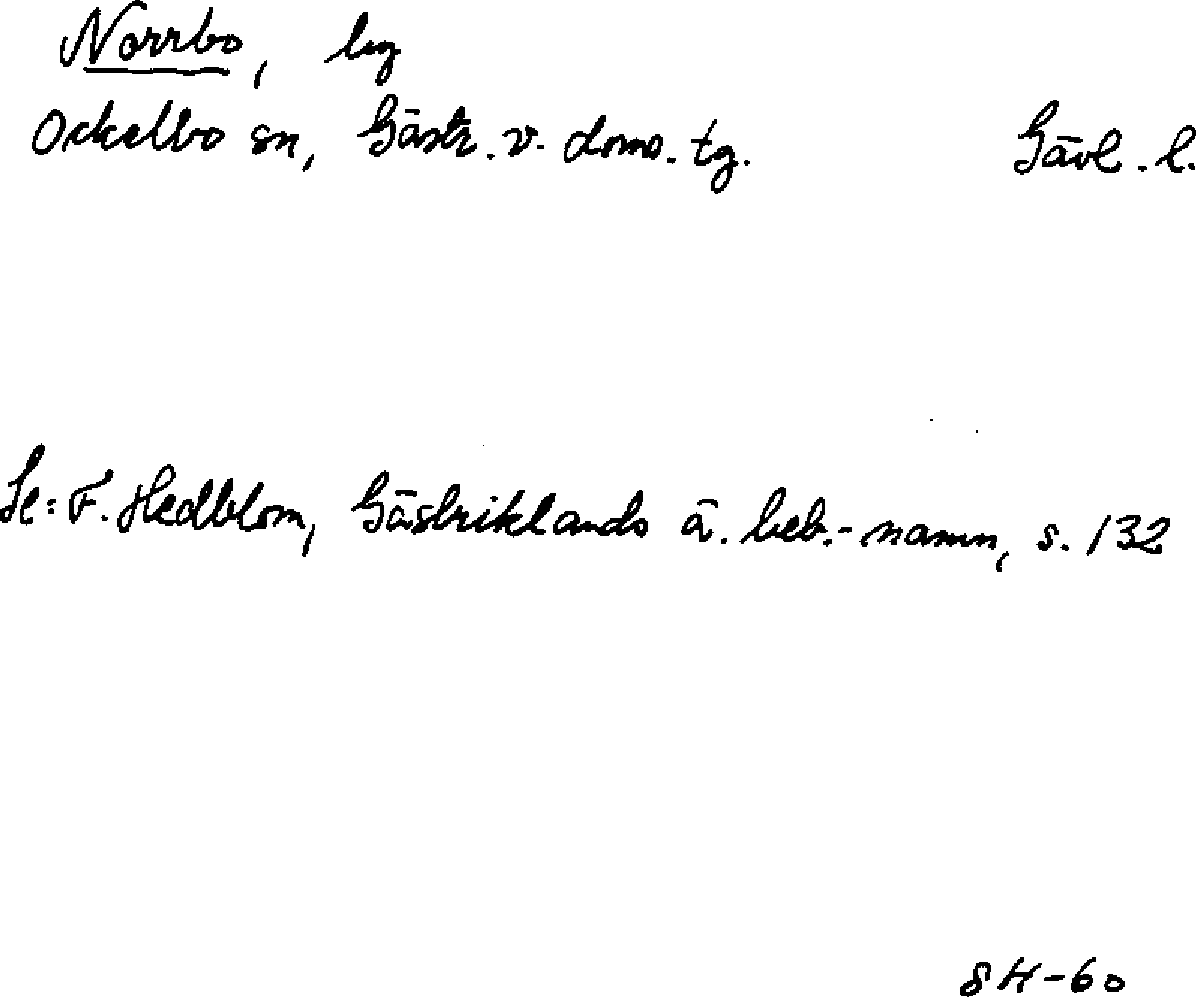 Norrbo, by
Ockelbo sn, Gästr. v. doms. tg. Gävl. l.
Se: F. Hedblom, Gästriklands ä. beb.-namn, s. 132
SH-60